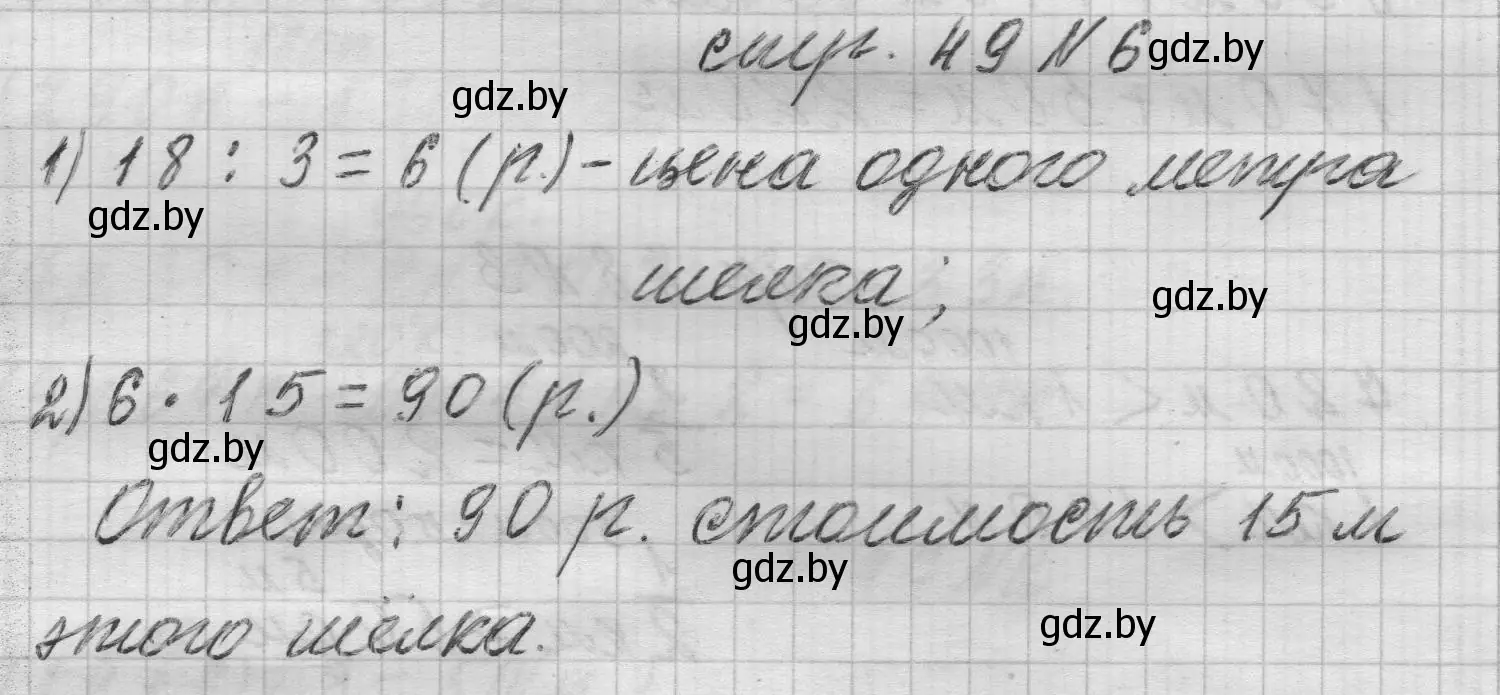 стр. 49 № 6 gdz.by
gdz.by
1) 18 : 3 = 6 (р.) - цена одного метра
gdz.by
шелка;
gdz.by
gdz.by
2) 6 · 15 = 90 (р.)
gdz.by
Ответ: 90 р. стоимость 15 м
gdz.by
этого шёлка.
gdz.by